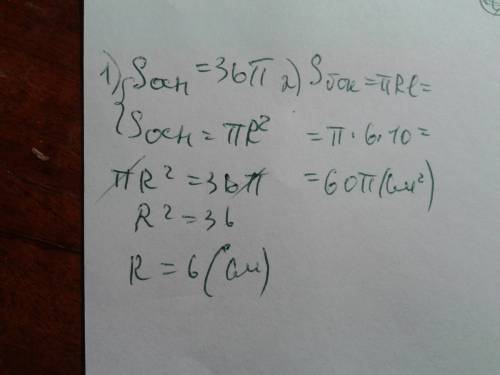 1) { Sосн = 36π
Sосн = πR²
πR² = 36π
R² = 36
R = 6 (см)
2) Sбок = πRl =
= π · 6 · 10 =
= 60π (см²)